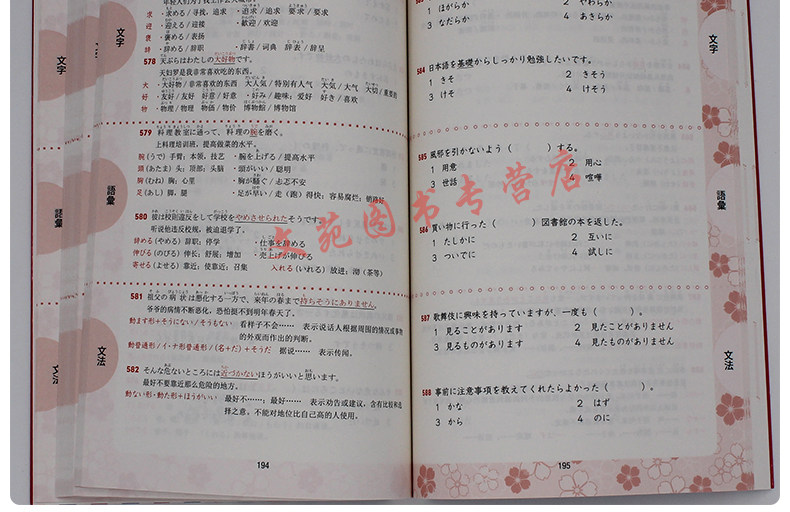 文字
求 ·求める/寻找,追求 ·追求/追求 要求/要求
迎 ·迎える/迎接 ·歓迎/欢迎
褒 ·褒める/表扬
辞 ·辞める/辞职 ·辞書/词典 辞表/辞呈
578 天ぷらはわたしの大好物です。
天妇罗是我非常喜欢吃的东西。
大 ·大好物/非常喜欢的东西 大人気/特别有人气 大気/大气
好 ·友好/友好 好意/好意 ·好み/趣味;爱好 好き/喜欢
物 ·物理/物理 物価/物价 博物館/博物馆
579 料理教室に通って、料理の腕を磨く。
上料理培训班,提高做菜的水平。
腕(うで)手臂;本领,技艺 ·腕を上げる/提高水平
頭(あたま)头;顶部;头脑 ·頭がいい/聪明
胸(むね)胸;心里 ·胸が騒ぐ/忐忑不安
足(あし)脚,腿 ·足が早い/走(跑)得快;容易腐烂;畅销
語彙
580 彼は校則違反をして学校をやめさせられたそうです。
听说他违反校规,被迫退学了。
辞める(やめる)辞职;停学 ·仕事を辞める
伸びる(のびる)伸长;舒展;增加 ·売上げが伸びる
寄せる(よせる)靠近;使靠近;召集 入れる(いれる)放进;沏(茶等)
581 祖父の病状は悪化する一方で、来年の春まで持ちそうにありません。
爷爷的病情不断恶化,恐怕挺不到明年春天了。
動ます形+そうにない/そうもない 看样子不会…… 表示说话人根据周围的情况或事物
的外观而作出的判断。
動普通形/イ·ナ形普通形/(名+だ)+そうだ 据说…… 表示传闻。
文法
582 そんな危ないところには近づかないほうがいいと思います。
最好不要靠近那么危险的地方。
動ない形·動た形+ほうがいい 最好不……;最好…… 表示劝告或建议,含有比较和选
择之意。不能对地位比自己高的人使用。
194
1 ほがらか 2 やわらか
3 なだらか 4 あきらか
文字
584 日本語を基礎からしっかり勉強したいです。
1 きそ 2 きそう
3 けそ 4 けそう
585 風邪を引かないよう( )する。
1 用意 2 用心
3 世話 4 喧嘩
語彙
586 買い物に行った( )図書館の本を返した。
1 たしかに 2 互いに
3 ついでに 4 試しに
587 歌舞伎に興味を持っていますが、一度も( )。
1 見ることがあります 2 見たことがありません
3 見るものがあります 4 見たものがありません
文法
588 事前に注意事項を教えてくれたらよかった( )。
1 かな 2 はず
3 から 4 のに
195
文苑图书专营店